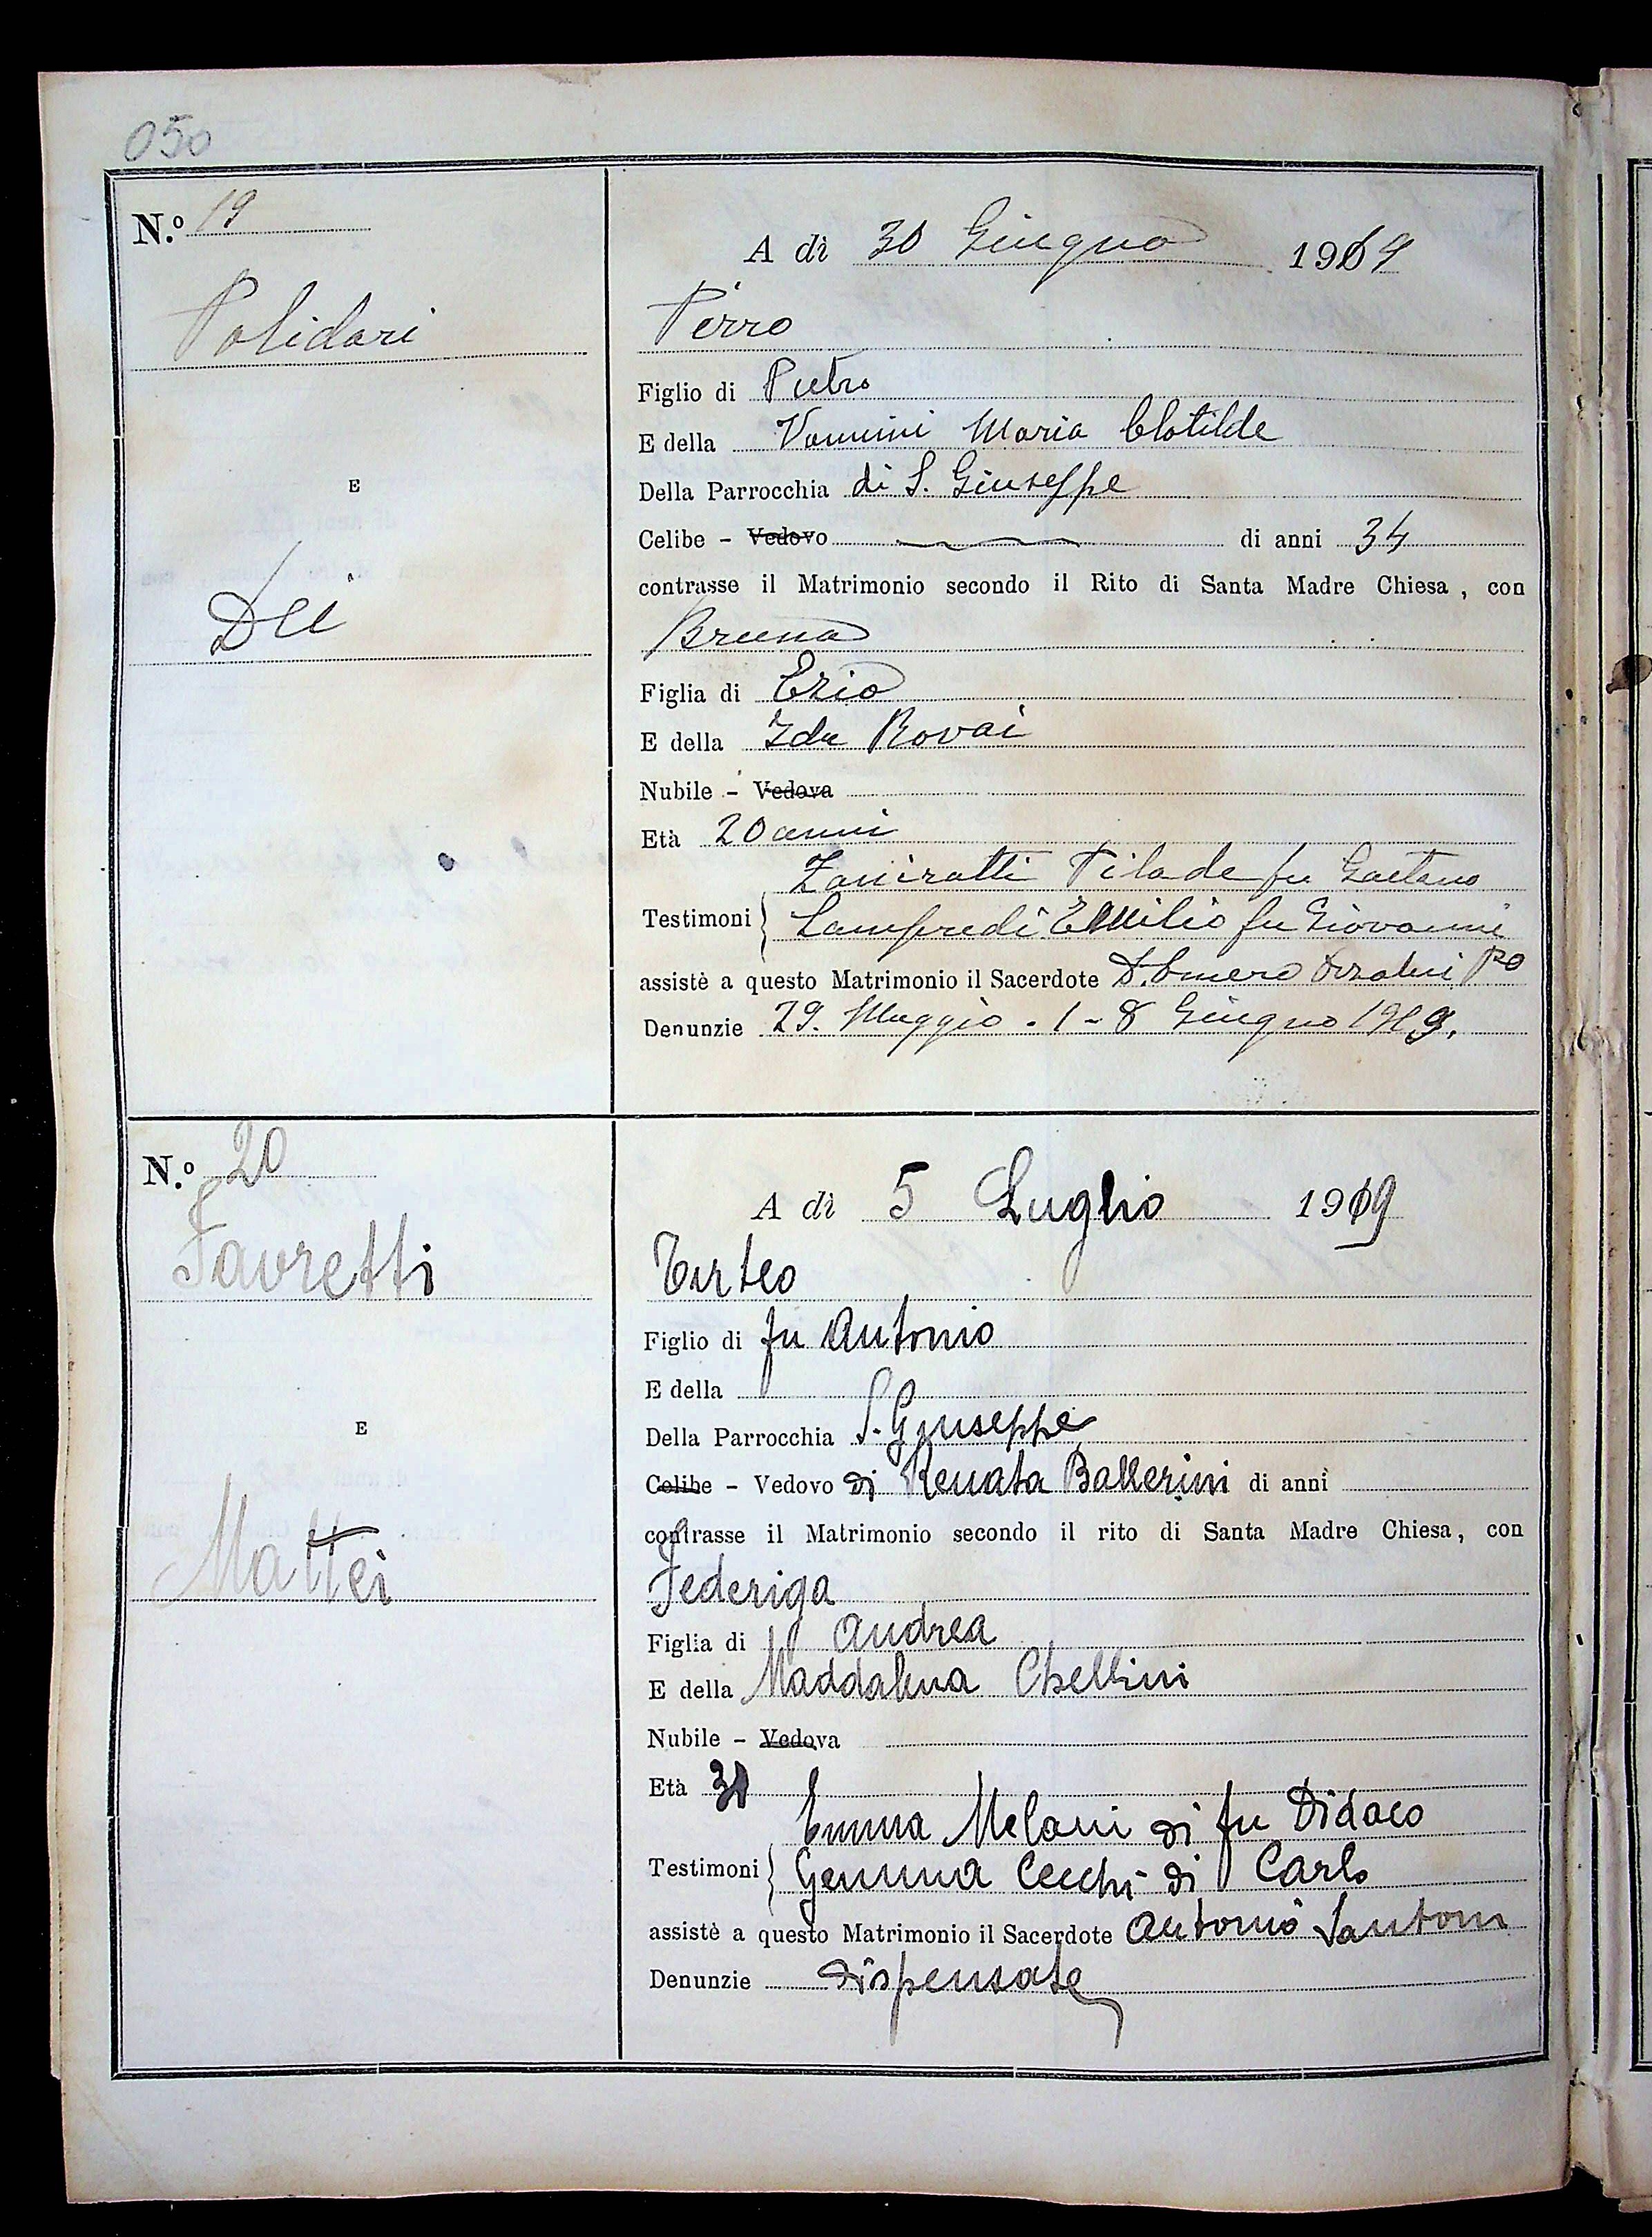 050
N.º 19
A dì 30 Giugno 1919
Polidori
Pirro
Figlio di Pietro
E della Vannini Maria Clotilde
Della Parrocchia di S. Giuseppe
E
Celibe - Vedovo di anni 34
contrasse il Matrimonio secondo il Rito di Santa Madre Chiesa, con
Dei
Bruna
Figlia di Ezio
E della Ida Rovai
Nubile - Vedova
Età 20 anni
Zaniratti Pilade fu Gaetano
Testimoni Lanfredi Emilio fu Giovanni
assistè a questo Matrimonio il Sacerdote D. Omero
Denunzie 29. Maggio - 1 - 8 Giugno 1919.
N.º 20
A dì 5 Luglio 1919
Favretti
Tirteo
Figlio di fu Antonio
E della
Della Parrocchia S. Giuseppe
E
Celibe - Vedovo di Renata Ballerini di anni
contrasse il Matrimonio secondo il rito di Santa Madre Chiesa, con
Mattei
Federiga
Figlia di Andrea
E della Maddalena Chellini
Nubile - Vedova
Età
Emma Melani di fu Didaco
Testimoni Gemma Cecchi di Carlo
assistè a questo Matrimonio il Sacerdote Antonio Santoni
Denunzie dispensate